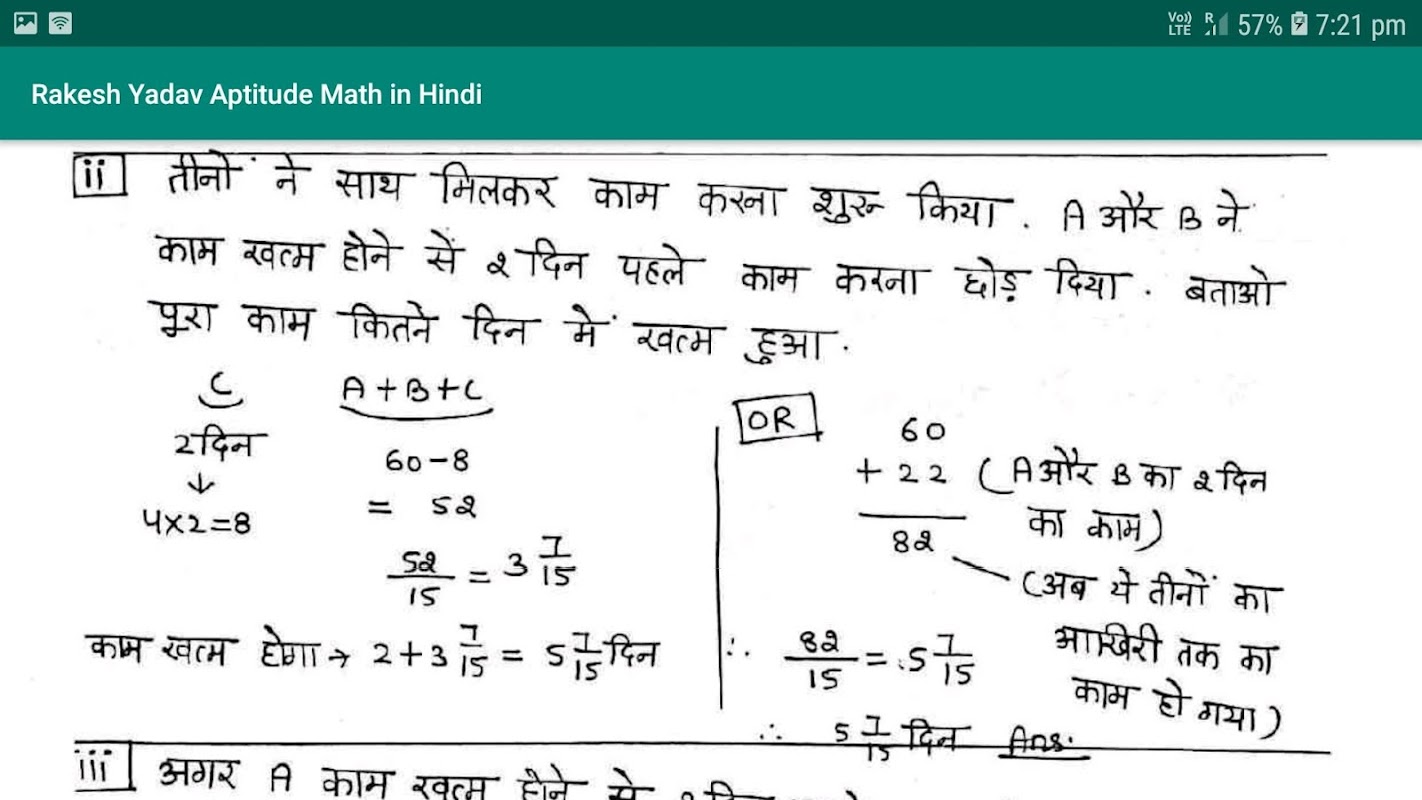 Vo)) LTE R 57% 7:21 pm
Rakesh Yadav Aptitude Math in Hindi
ii तीनों ने साथ मिलकर काम करना शुरू किया. A और B ने
काम खत्म होने सें 2 दिन पहले काम करना छोड़ दिया. बताओ
पूरा काम कितने दिन में खत्म हुआ.
C
2 दिन
↓
4×2=8
A+B+C
60-8
= 52
52/15 = 3 7/15
काम खत्म होगा → 2+3 7/15 = 5 7/15 दिन
OR
60
+ 22 (A और B का 2 दिन
का काम)
82
(अब ये तीनों का
आखिरी तक का
काम हो गया)
∴ 82/15 = 5 7/15
∴ 5 7/15 दिन Ans.
iii अगर A काम खत्म होने से 2 दिन